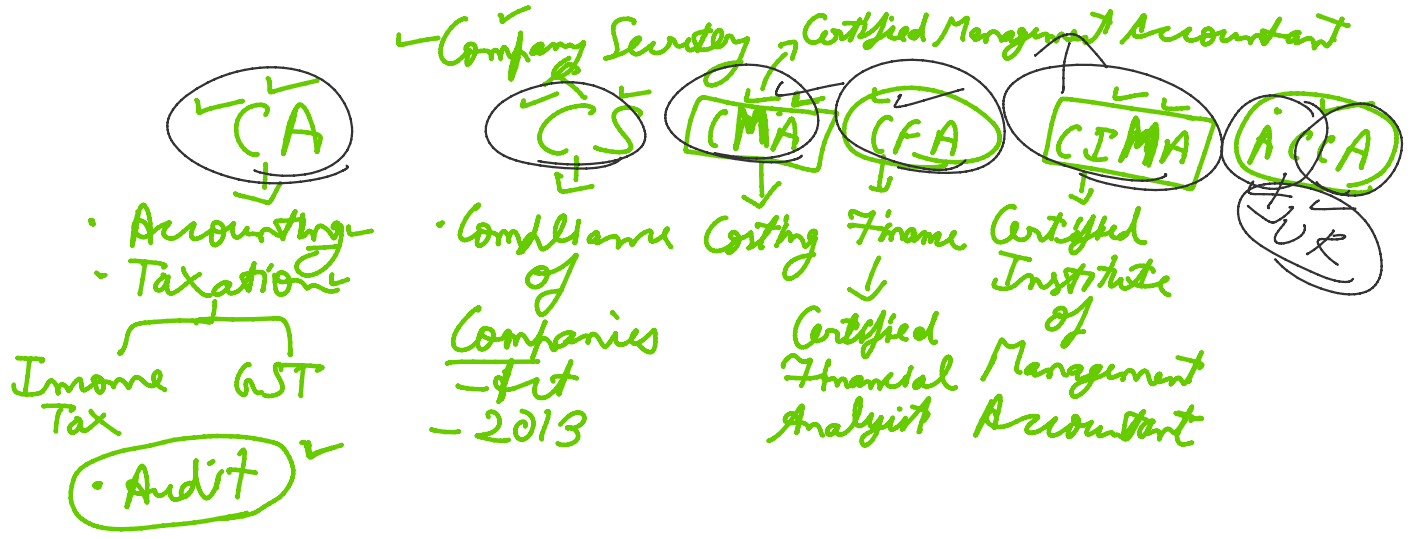 Company Secretary
Certified Management Accountant
CA
CS
CMA
CFA
CIMA
ACCA
UK
• Accounting
• Taxation
Income Tax
GST
• Audit
• Compliance
of
Companies
- Act
- 2013
Costing
Finance
Certified
Financial
Analyist
Certified
Institute
of
Management
Accountant